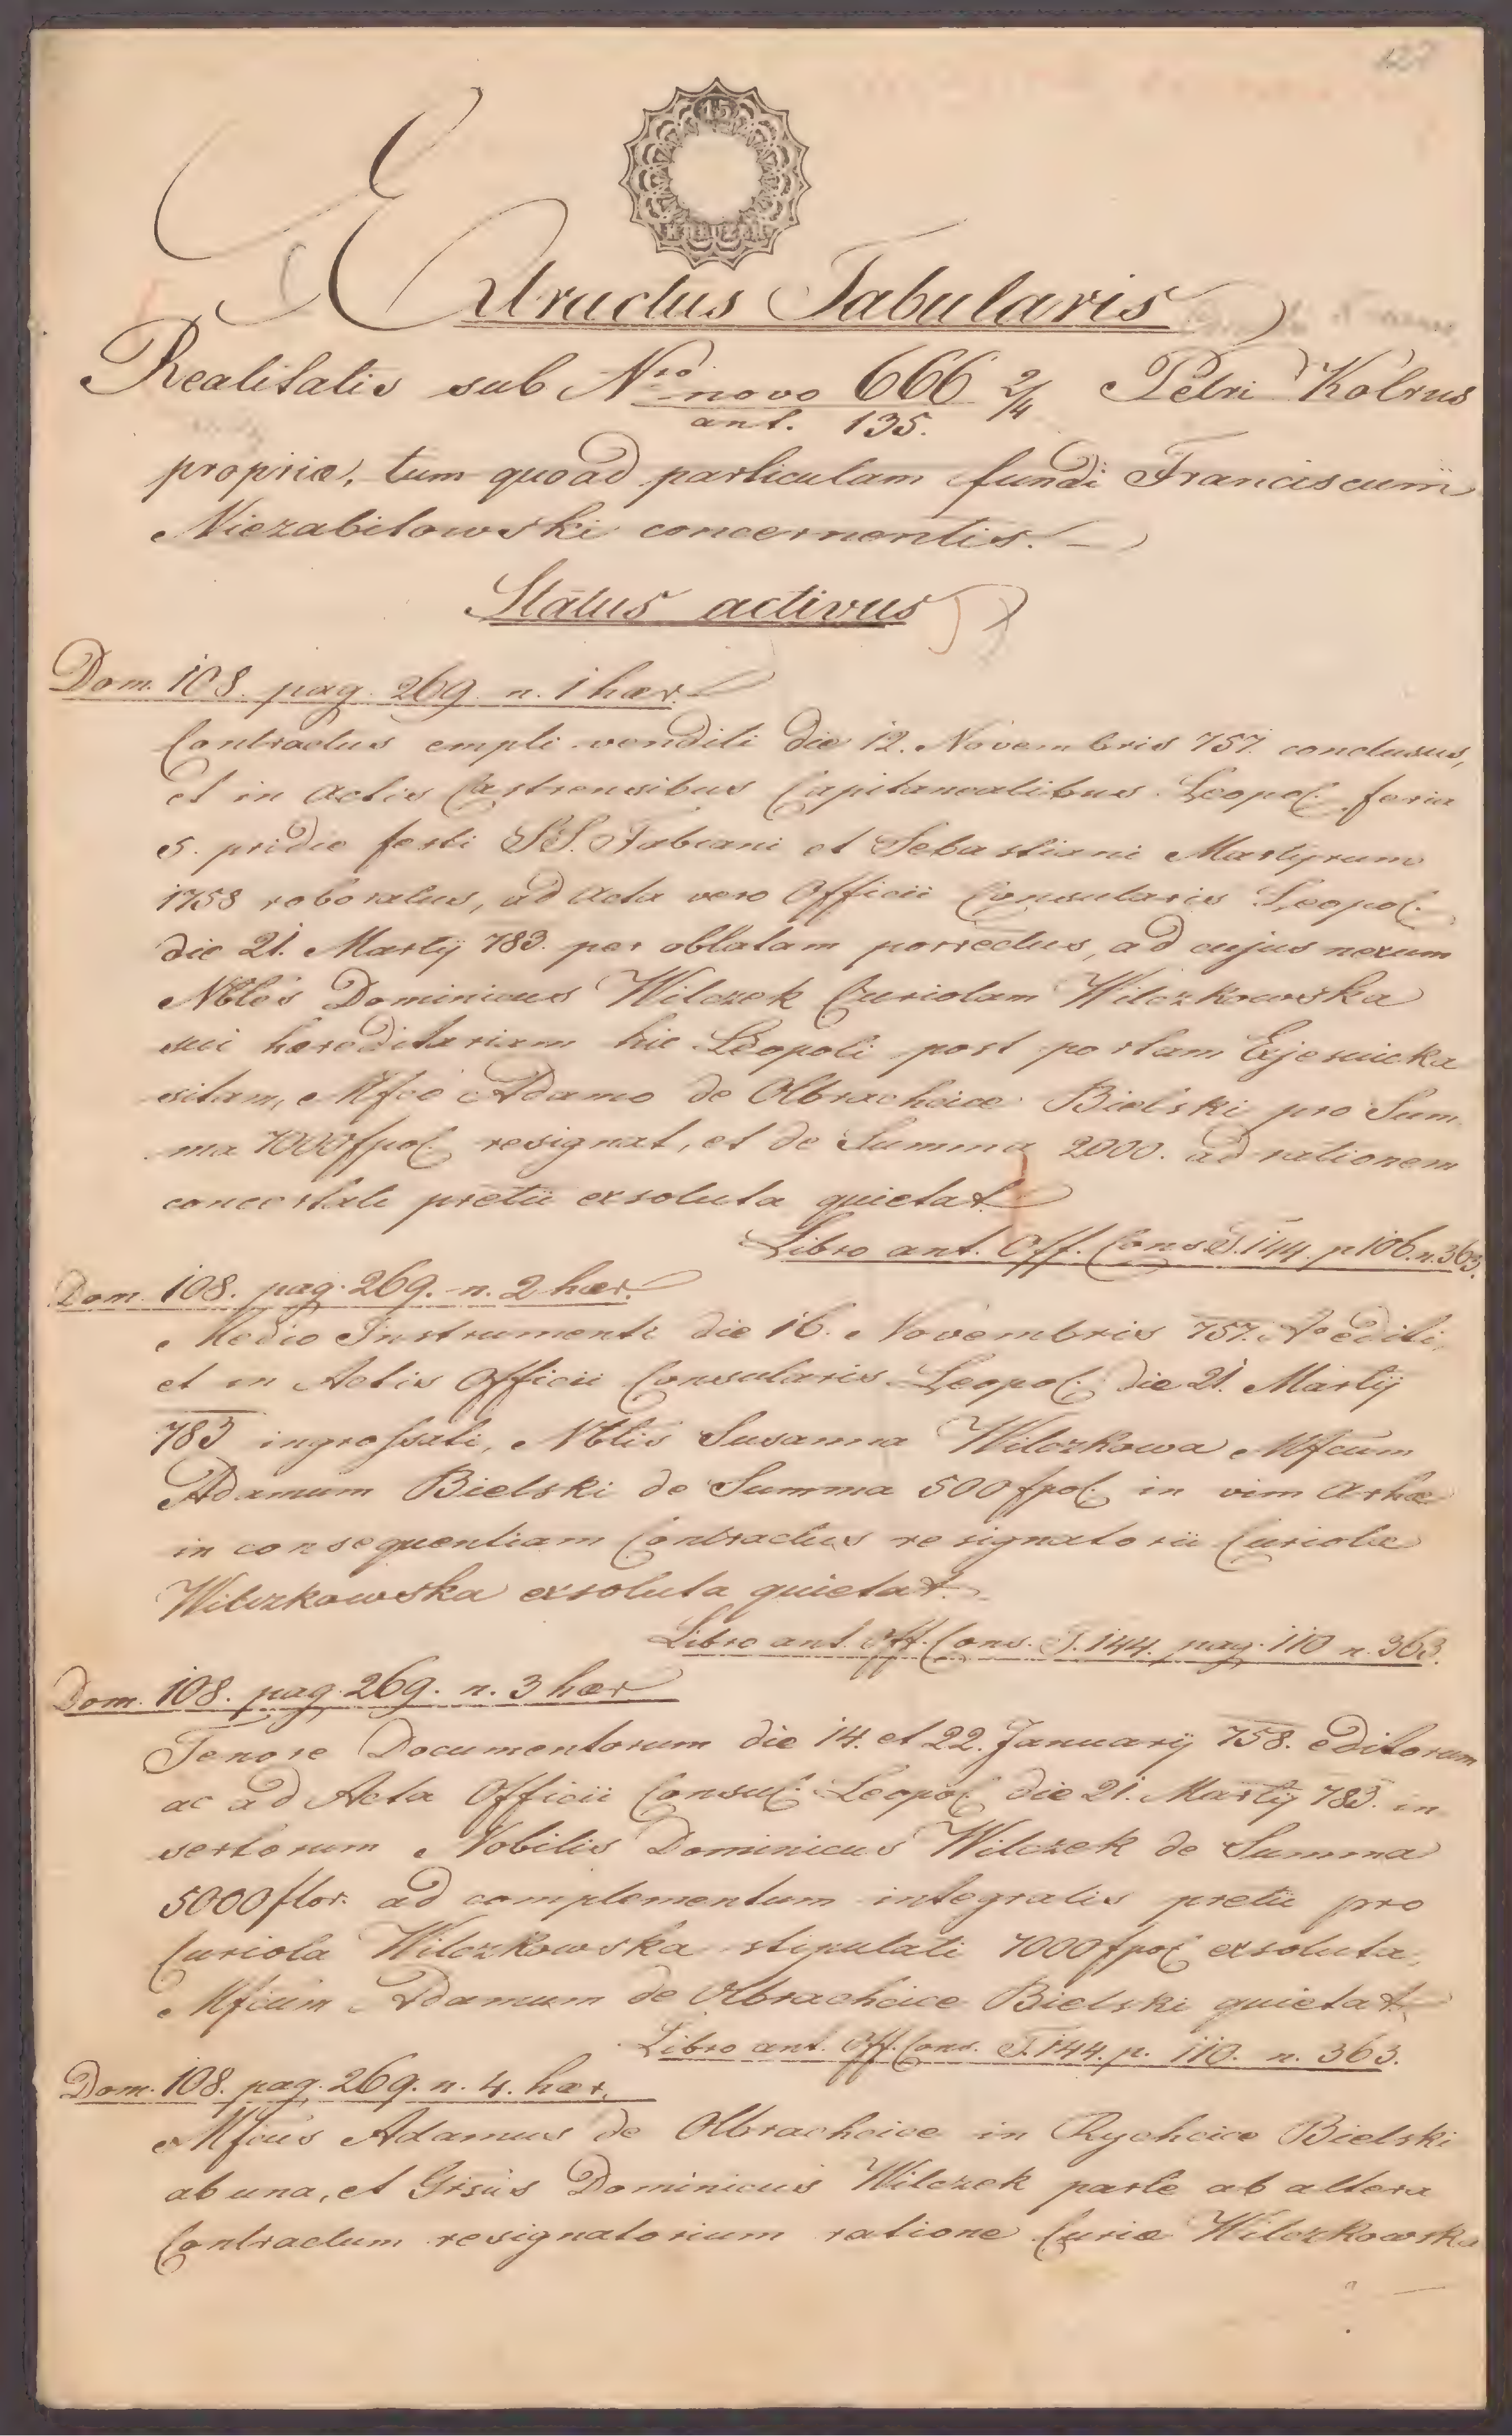 127
15
Extractus Tabularis
Realitatis sub Nro novo 666 2/4 Petri Kolrus
ant. 135.
propriæ, tum quoad particulam fundi Franciscum
Niezabitowski concernentis.
Status activus
Dom. 108. pag. 269. n. 1 hær.
Contractus empti venditi die 12. Novembris 757. conclusus,
et in Actis Castrensibus Capitanealibus Leopol. feria
5. pridie festi S.S. Fabiani et Sebastiani Martyrum
1758 roboratus, ad Acta vero Officii Consularis Leopol.
die 21. Martij 783. per oblatam porrectus, ad cujus nexum
Nbles Dominicus Wilczek Curiolam Wilczkowska
sui hæreditariam hic Leopoli post portam Exjesuicka
sitam, Mfco Adamo de Olbrachcice Bielski pro Sum
ma 7000 fpol. resignat, et de Summa 2000. ad rationem
concertati pretii exsoluta quietat.
Libro ant. Off. Cons. T. 144. p 106. n. 363.
Dom. 108. pag. 269. n. 2 hær.
Medio Instrumenti die 16. Novembris 757. Ao editi,
et in Actis Officii Consularis Leopol. die 21. Martij
783 ingrossati, Nblis Susanna Wilczkowa Mfcum
Adamum Bielski de Summa 500 fpol. in vim Arhæ
in consequentiam Contractus resignatorii Curiolæ
Wilczkowska exsoluta quietat.
Libro ant. Off. Cons. T. 144. pag. 110 n. 363.
Dom. 108. pag. 269. n. 3 hær
Tenore Documentorum die 14. et 22. Januarij 758. editorum
ac ad Acta Officii Consul. Leopol. die 21. Martij 783. in
sertorum Nobilis Dominicus Wilczek de Summa
5000 flor. ad complementum integralis pretii pro
Curiola Wilczkowska stipulati 7000 fpol. exsoluta,
Mficum Adamum de Olbrachcice Bielski quietat.
Libro ant. Off. Cons. T. 144. p. 110. n. 363.
Dom. 108. pag. 269. n. 4. hær.
Mfcus Adamus de Olbrachcice in Rychcice Bielski
ab una, et Grsus Dominicus Wilczek parte ab altera
Contractum resignatorium ratione Curiæ Wilczkowska